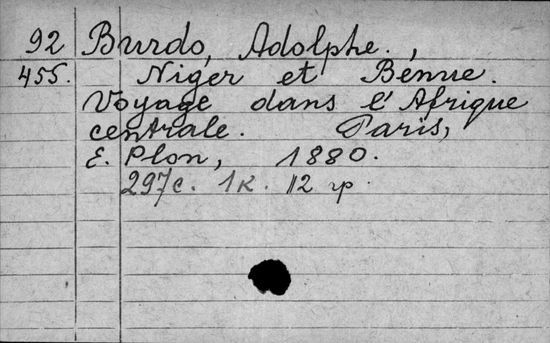 92 Burdo, Adolphe.,
455. Niger et Bénue.
Voyage dans l'Afrique
centrale. Paris,
E. Plon, 1880.
297с. 1к. 112 гр.